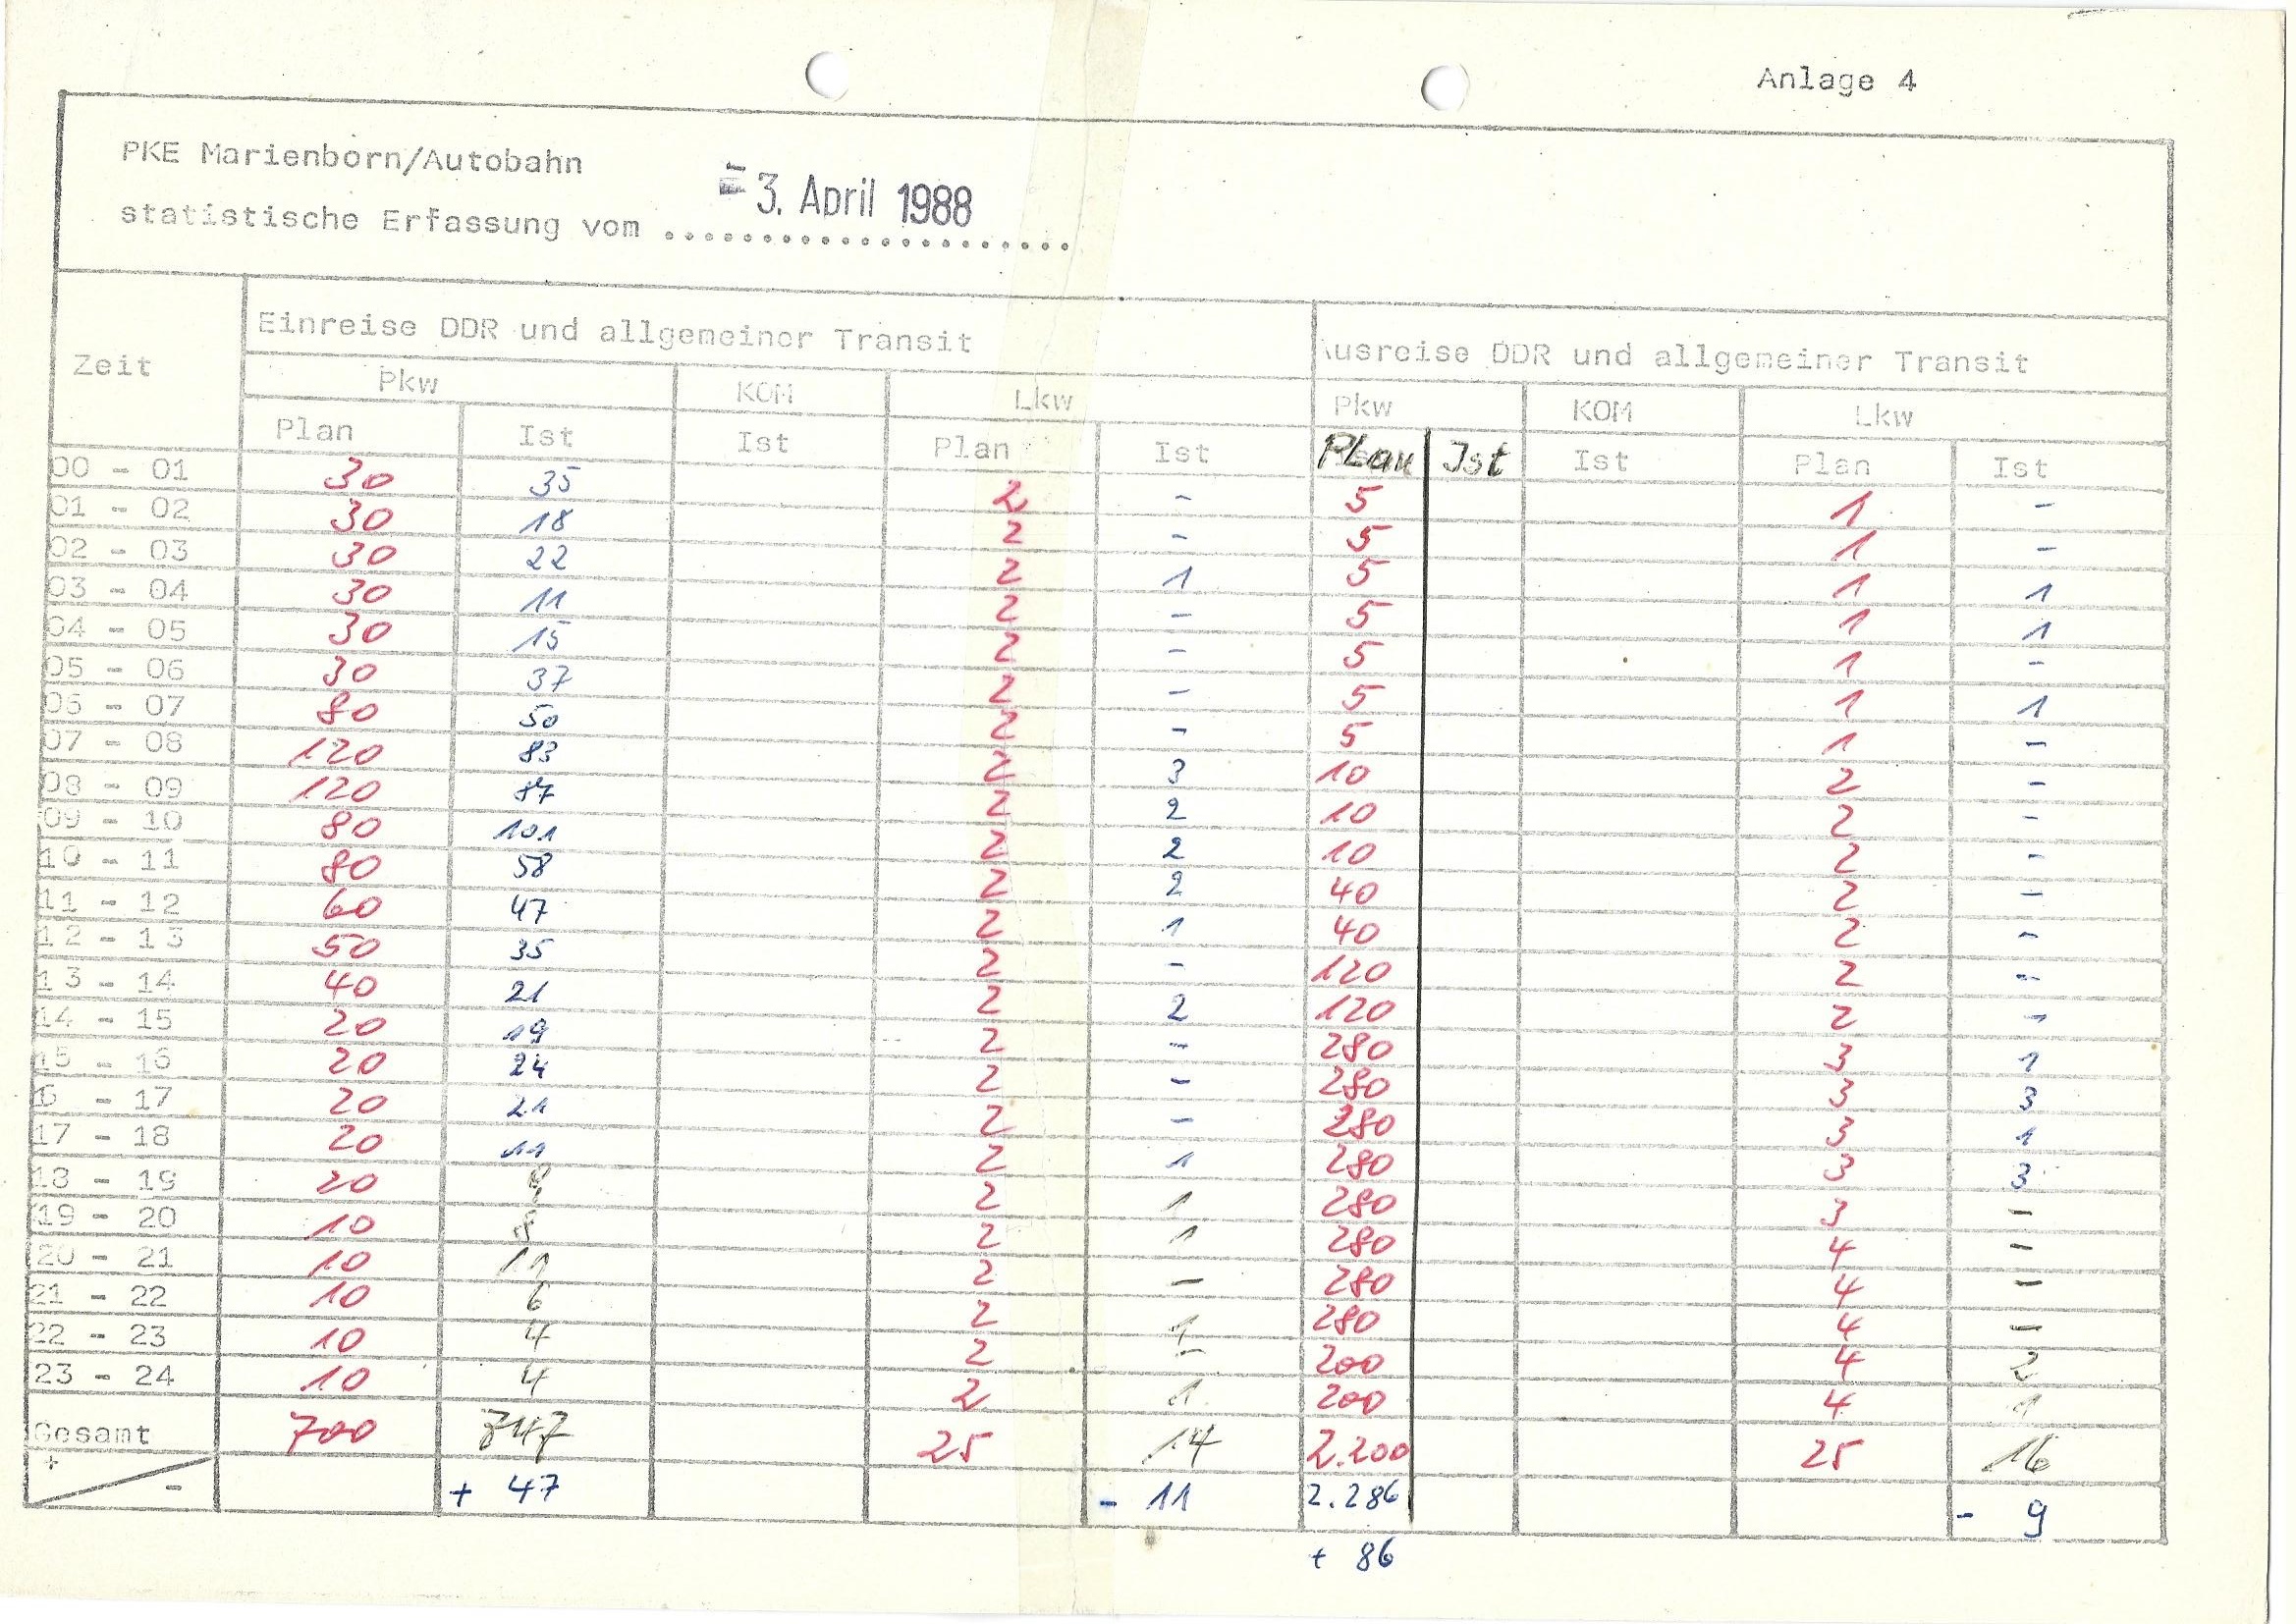 Anlage 4
PKE Marienborn/Autobahn
statistische Erfassung vom ..................... - 3. April 1988
Einreise DDR und allgemeiner Transit Ausreise DDR und allgemeiner Transit
Zeit Pkw KOM Lkw Pkw KOM Lkw
Plan Ist Ist Plan Ist Plan Ist Ist Plan Ist
00 - 01 30 35 2 - 5 1 -
01 - 02 30 18 2 - 5 1 -
02 - 03 30 22 2 1 5 1 1
03 - 04 30 11 2 - 5 1 1
04 - 05 30 15 2 - 5 1 -
05 - 06 30 37 2 - 5 1 1
06 - 07 80 50 2 - 5 1 -
07 - 08 120 83 2 3 10 2 -
08 - 09 120 87 2 2 10 2 -
09 - 10 80 101 2 2 10 2 -
10 - 11 80 58 2 2 40 2 -
11 - 12 60 47 2 1 40 2 -
12 - 13 50 35 2 - 120 2 -
13 - 14 40 21 2 2 120 2 -
14 - 15 20 19 2 - 280 3 1
15 - 16 20 24 2 - 280 3 3
16 - 17 20 21 2 - 280 3 1
17 - 18 20 11 2 1 280 3 3
18 - 19 20 2 1 280 3 -
19 - 20 10 8 2 1 280 4 -
20 - 21 10 2 - 280 4 -
21 - 22 10 6 2 1 280 4 -
22 - 23 10 4 2 - 200 4 2
23 - 24 10 4 2 1 200 4 1
Gesamt 700 747 25 14 2.200 25 16
+ - + 47 - 11 2.286 - 9
+ 86